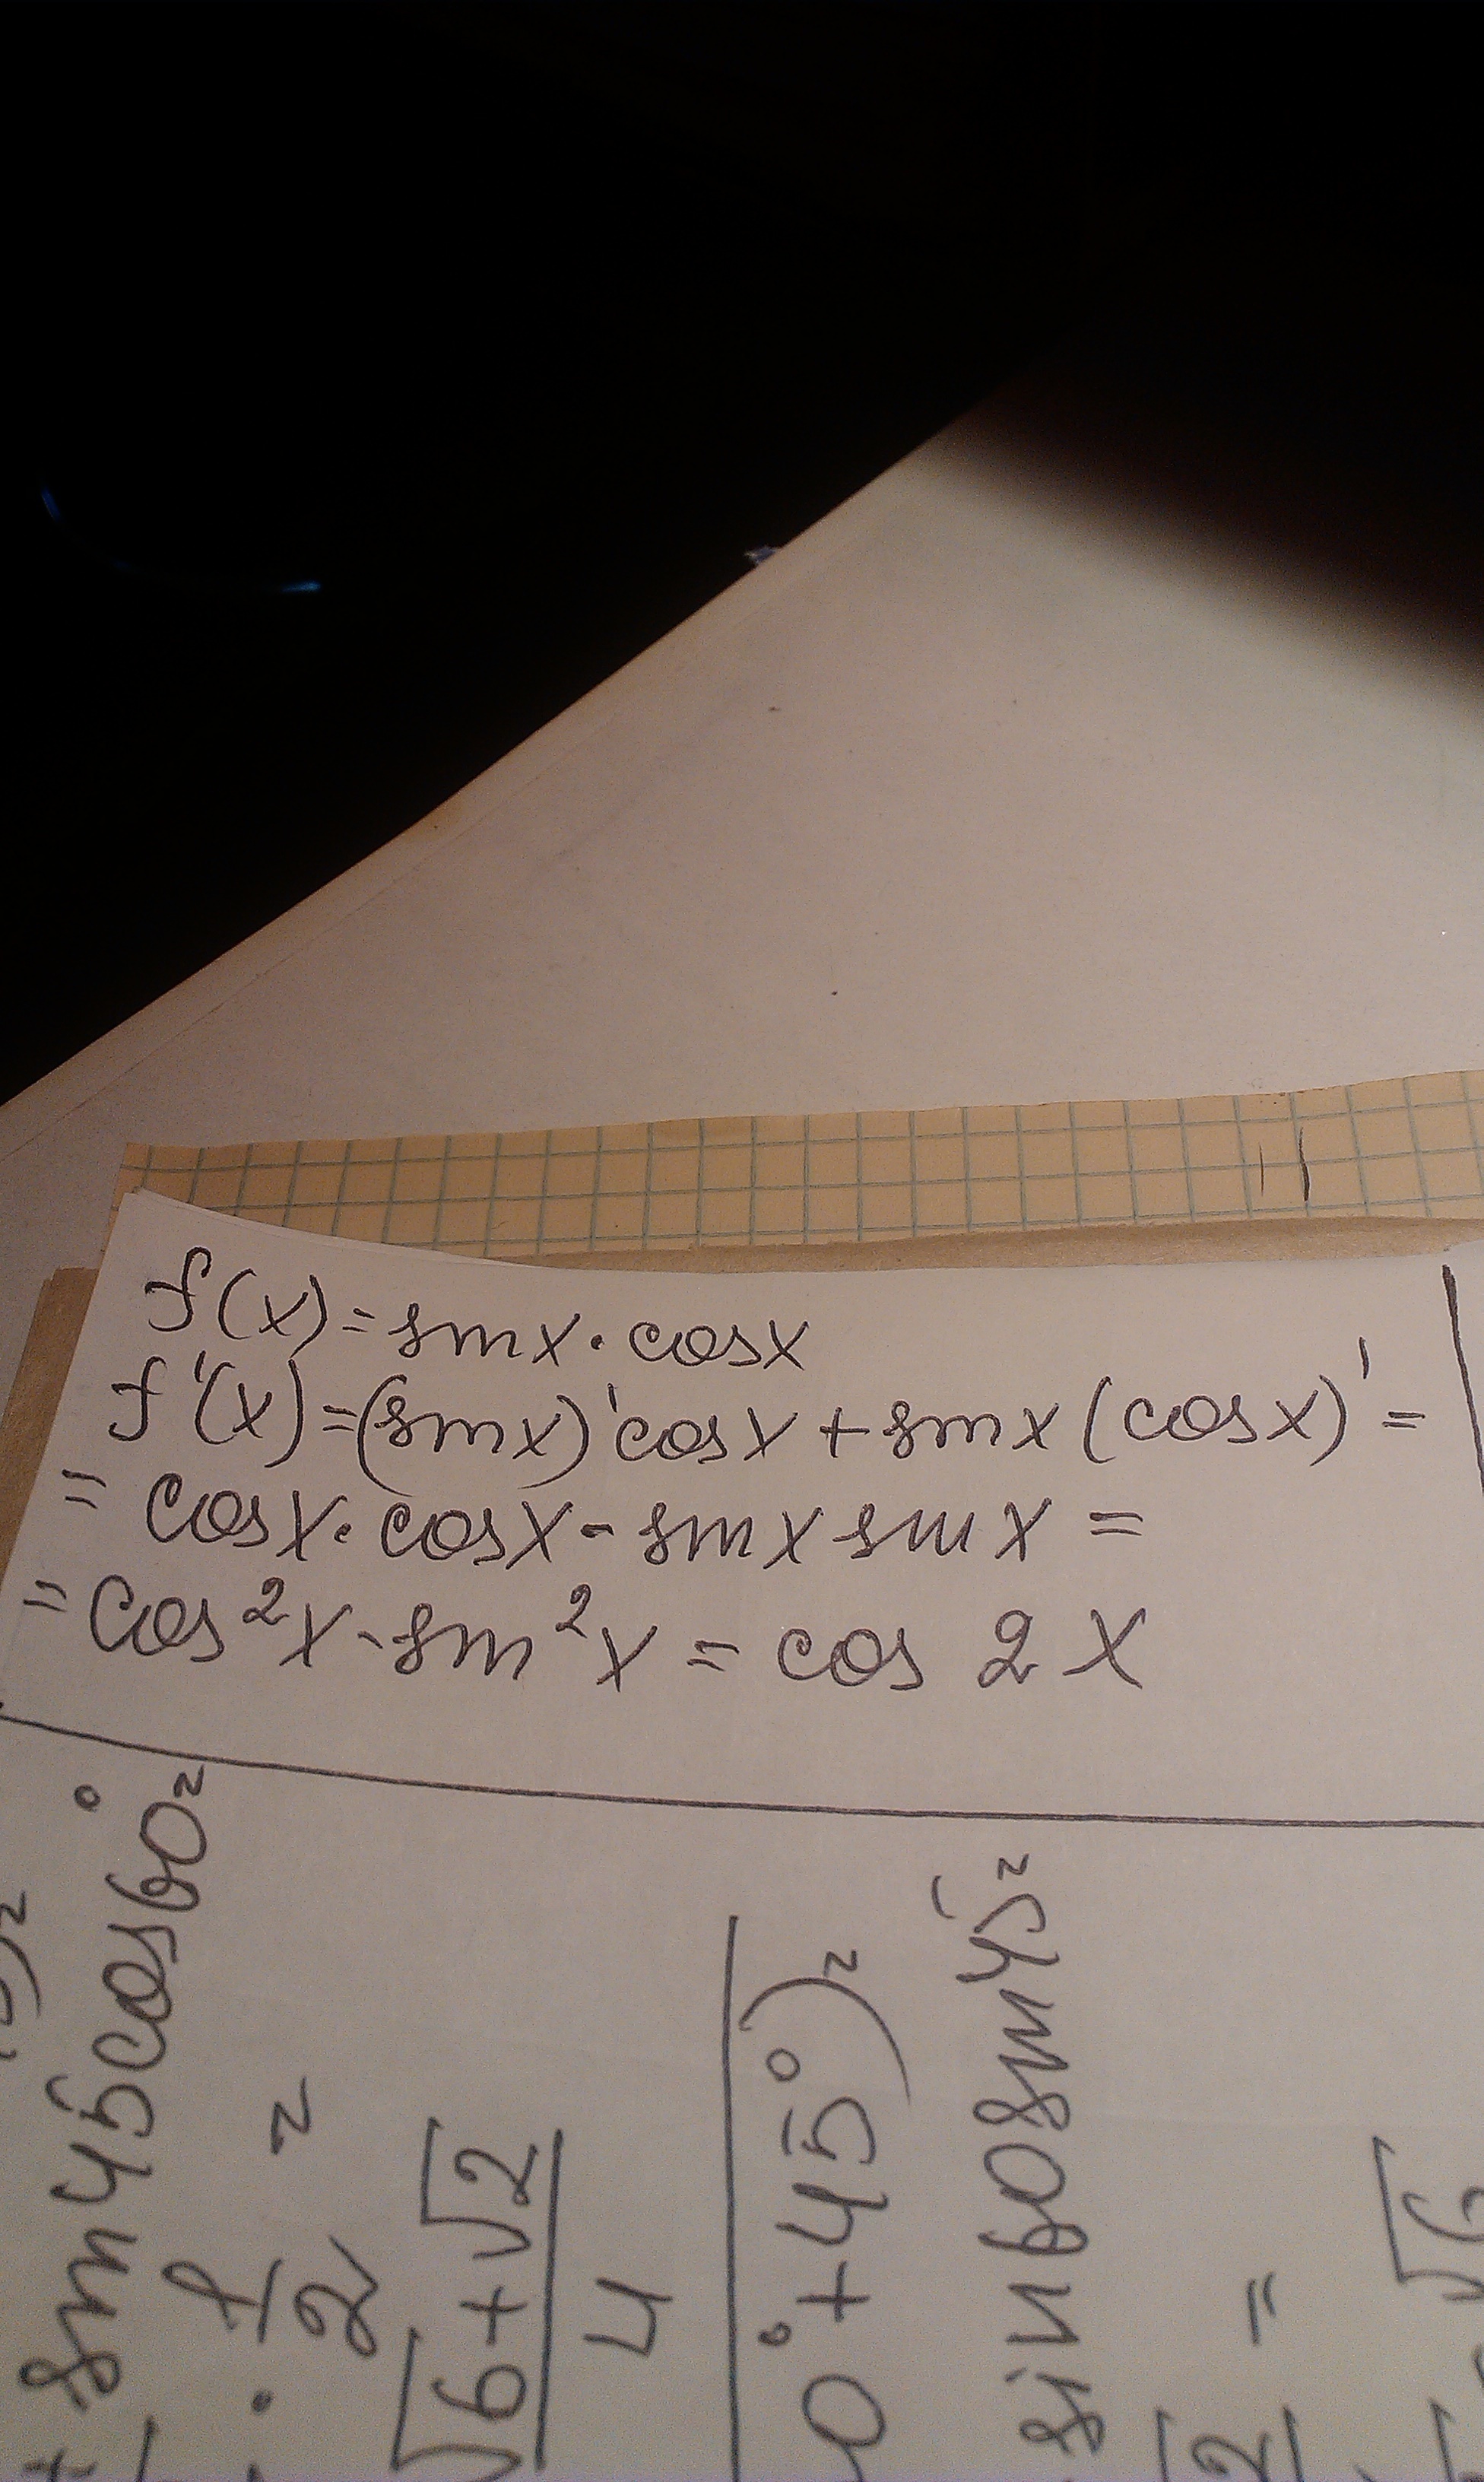 f(x)=sinx·cosx
f'(x)=(sinx)'cosx+sinx(cosx)'=
= cosx·cosx-sinx sinx=
= cos²x-sin²x=cos 2x
sin45cos60°=
· 1/2 =
√6+√2
4
0°+45°)=
sin60sin45=
=